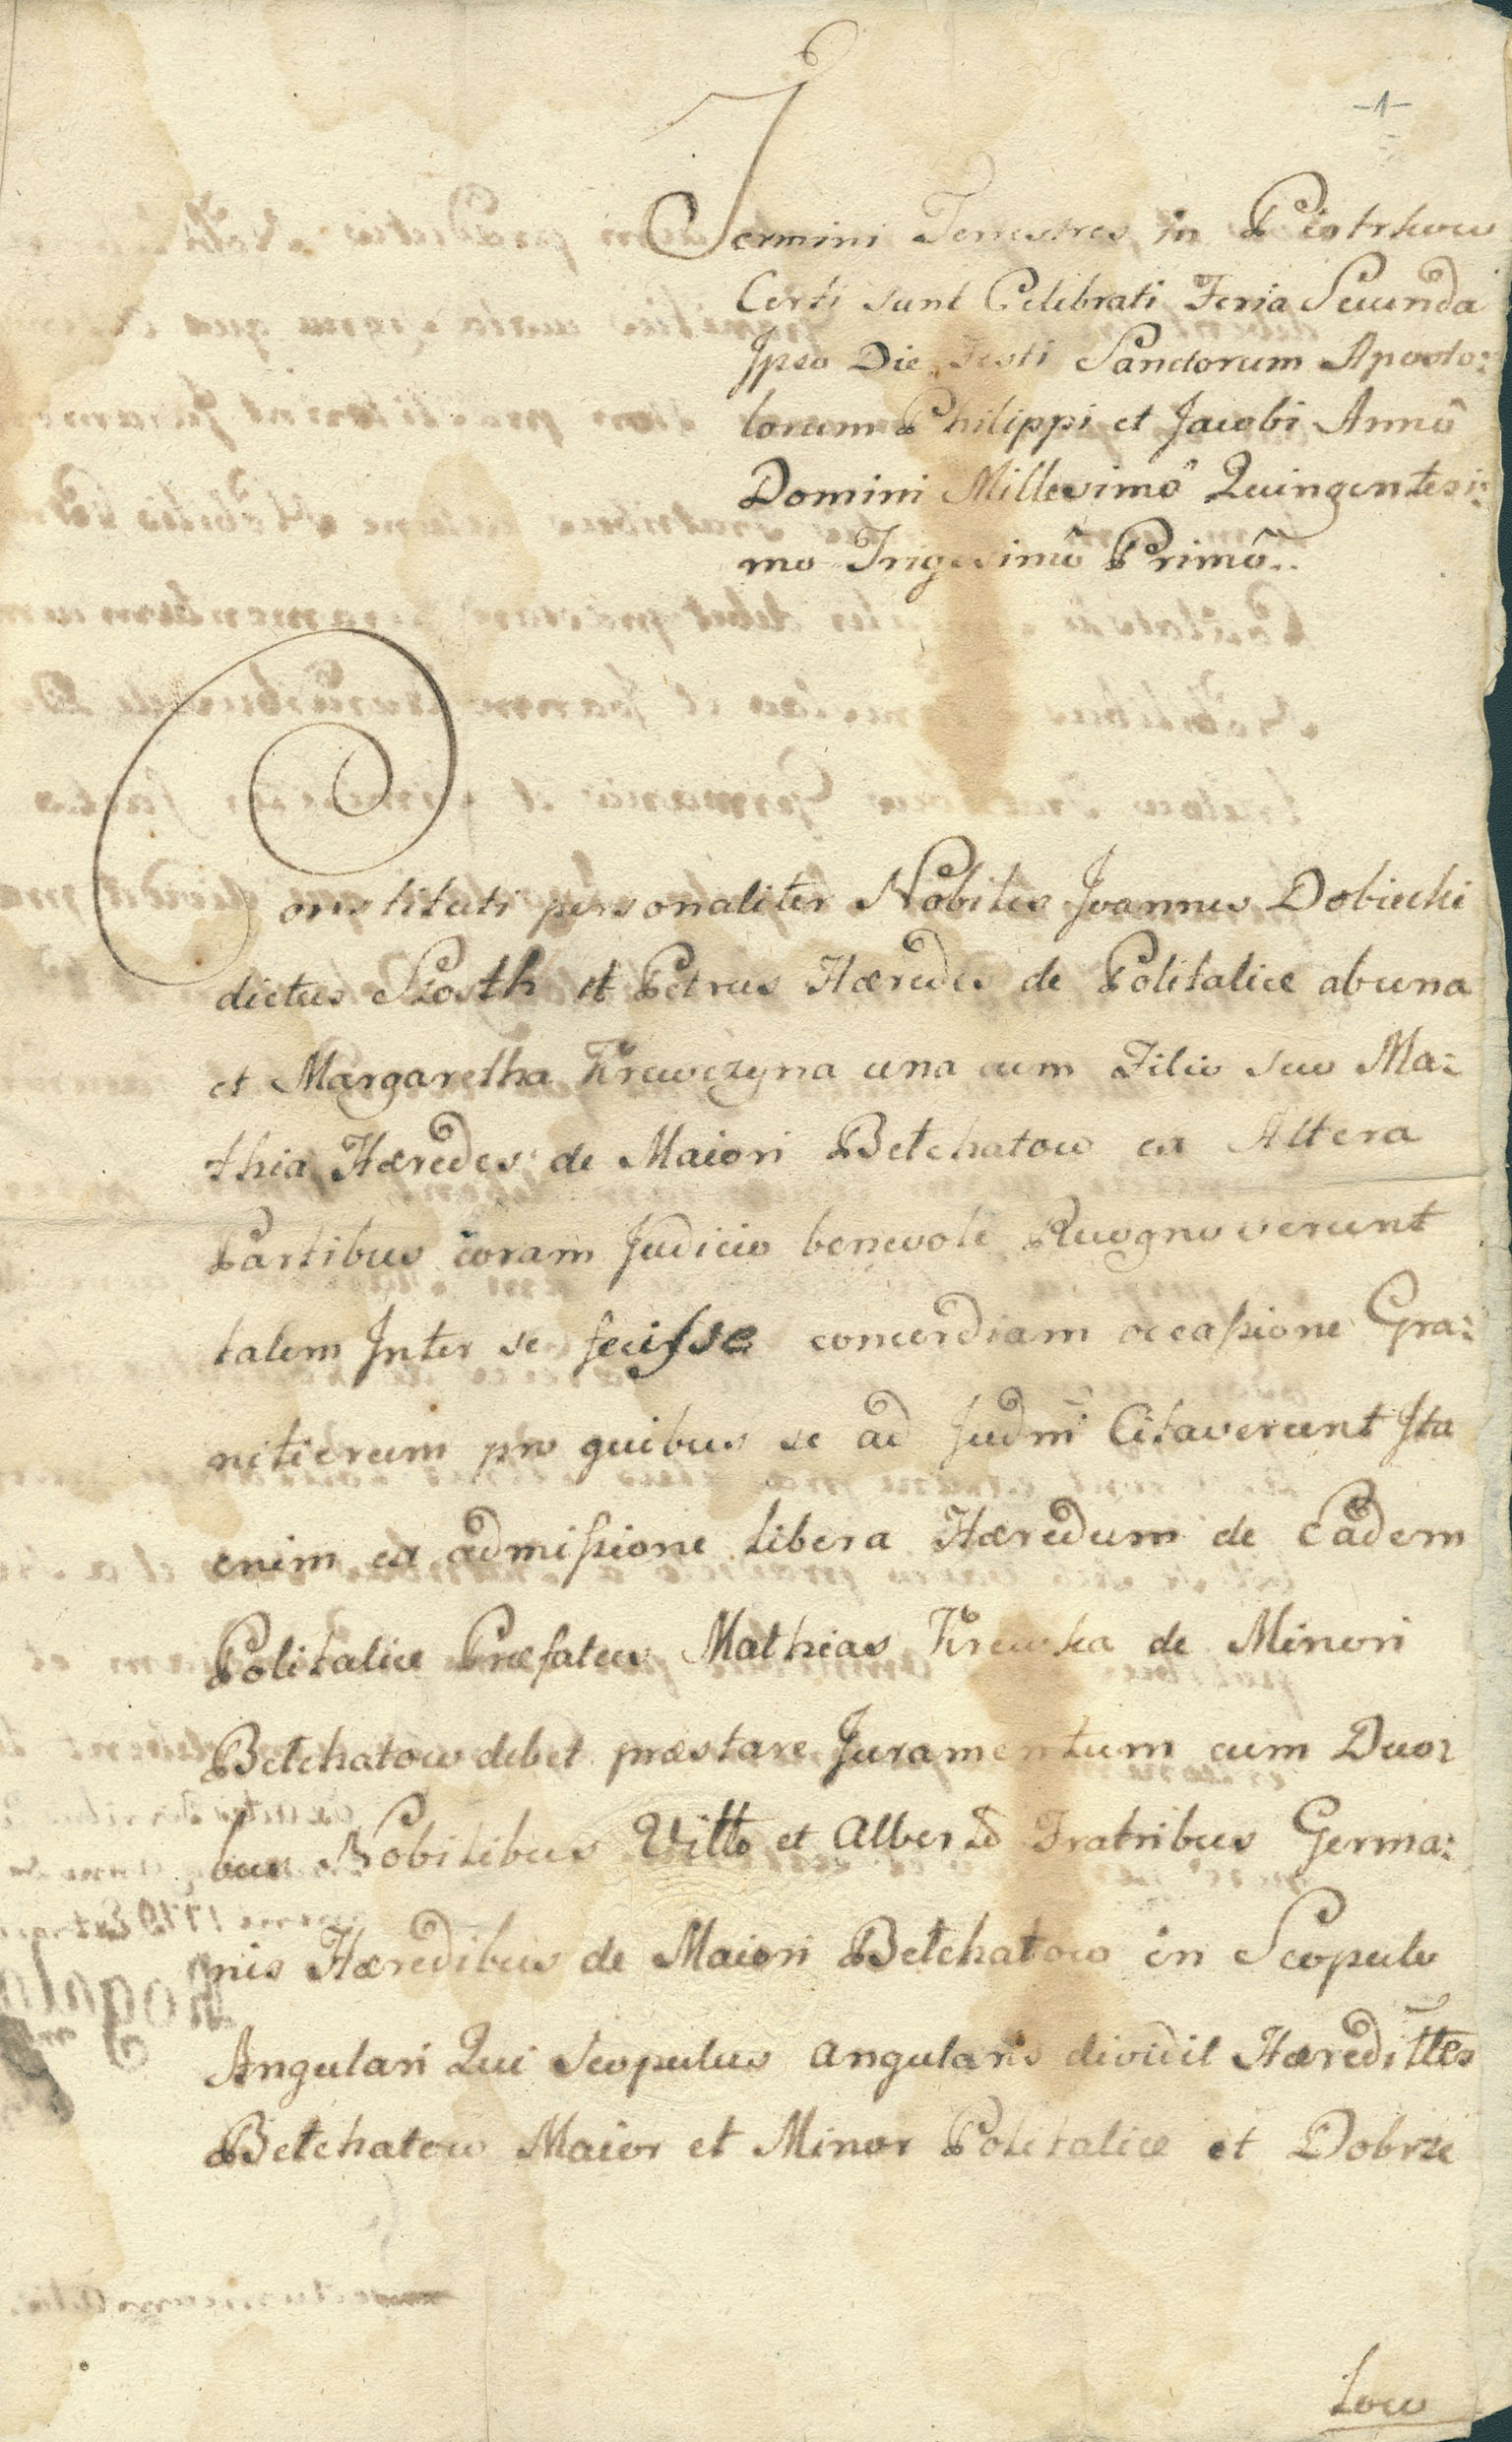 -1-
Termini Terrestres in Piotrkow
Certi sunt Celebrati Feria Secunda
Ipso Die Festi Sanctorum Aposto:
lorum Philippi et Jacobi Annô
Domini Millesimô Quingentesi:
mo Trigesimô Primô..
Constituti personaliter Nobiles Joannes Dobiecki
dictus et Petrus Hæredes de Politalice ab una
et Margaretha Krewczyna una cum Filio suo Ma:
thia Hæredes de Maiori Bełchatow ex Altera
Partibus coram Judicio benevole Recognoverunt
talem Inter se fecisse concordiam occasione Gra:
nitierum pro quibus se ad Judm̄ Citaverunt Ita
enim ex admissione libera Hæredum de Eadem
Politalice Præfatus Mathias Krewka de Minori
Bełchatow debet præstare Juramentum cum Duo:
bus Nobilibus Vitto et Alberto Fratribus Germa:
nis Hæredibus de Maiori Bełchatow in Scopulo
Angulari Qui Scopulus angularis dividit Hæreditt̄es
Bełchatow Maior et Minor Politalice et Dobrze
low